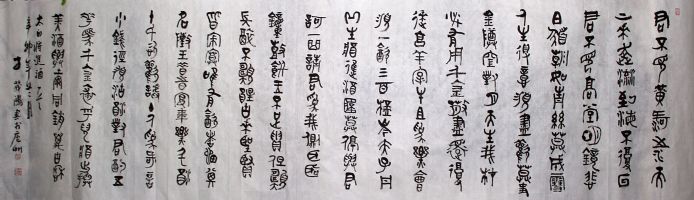 君不見黃河之水天
上來奔流到海不復回
君不見高堂明鏡悲
白髮朝如青絲暮成雪
人生得意須盡歡莫使
金樽空對月天生我材
必有用千金散盡還復
來烹羊宰牛且為樂會
須一飲三百杯岑夫子丹
丘生將進酒杯莫停與君
歌一曲請君為我側耳聽
鐘鼓饌玉不足貴但願
長醉不願醒古來聖賢
皆寂寞惟有飲者留其
名陳王昔時宴平樂斗酒
十千恣歡謔主人何為言
少錢徑須沽取對君酌五
花馬千金裘呼兒將出換
美酒與爾同銷萬古愁
太白將進酒